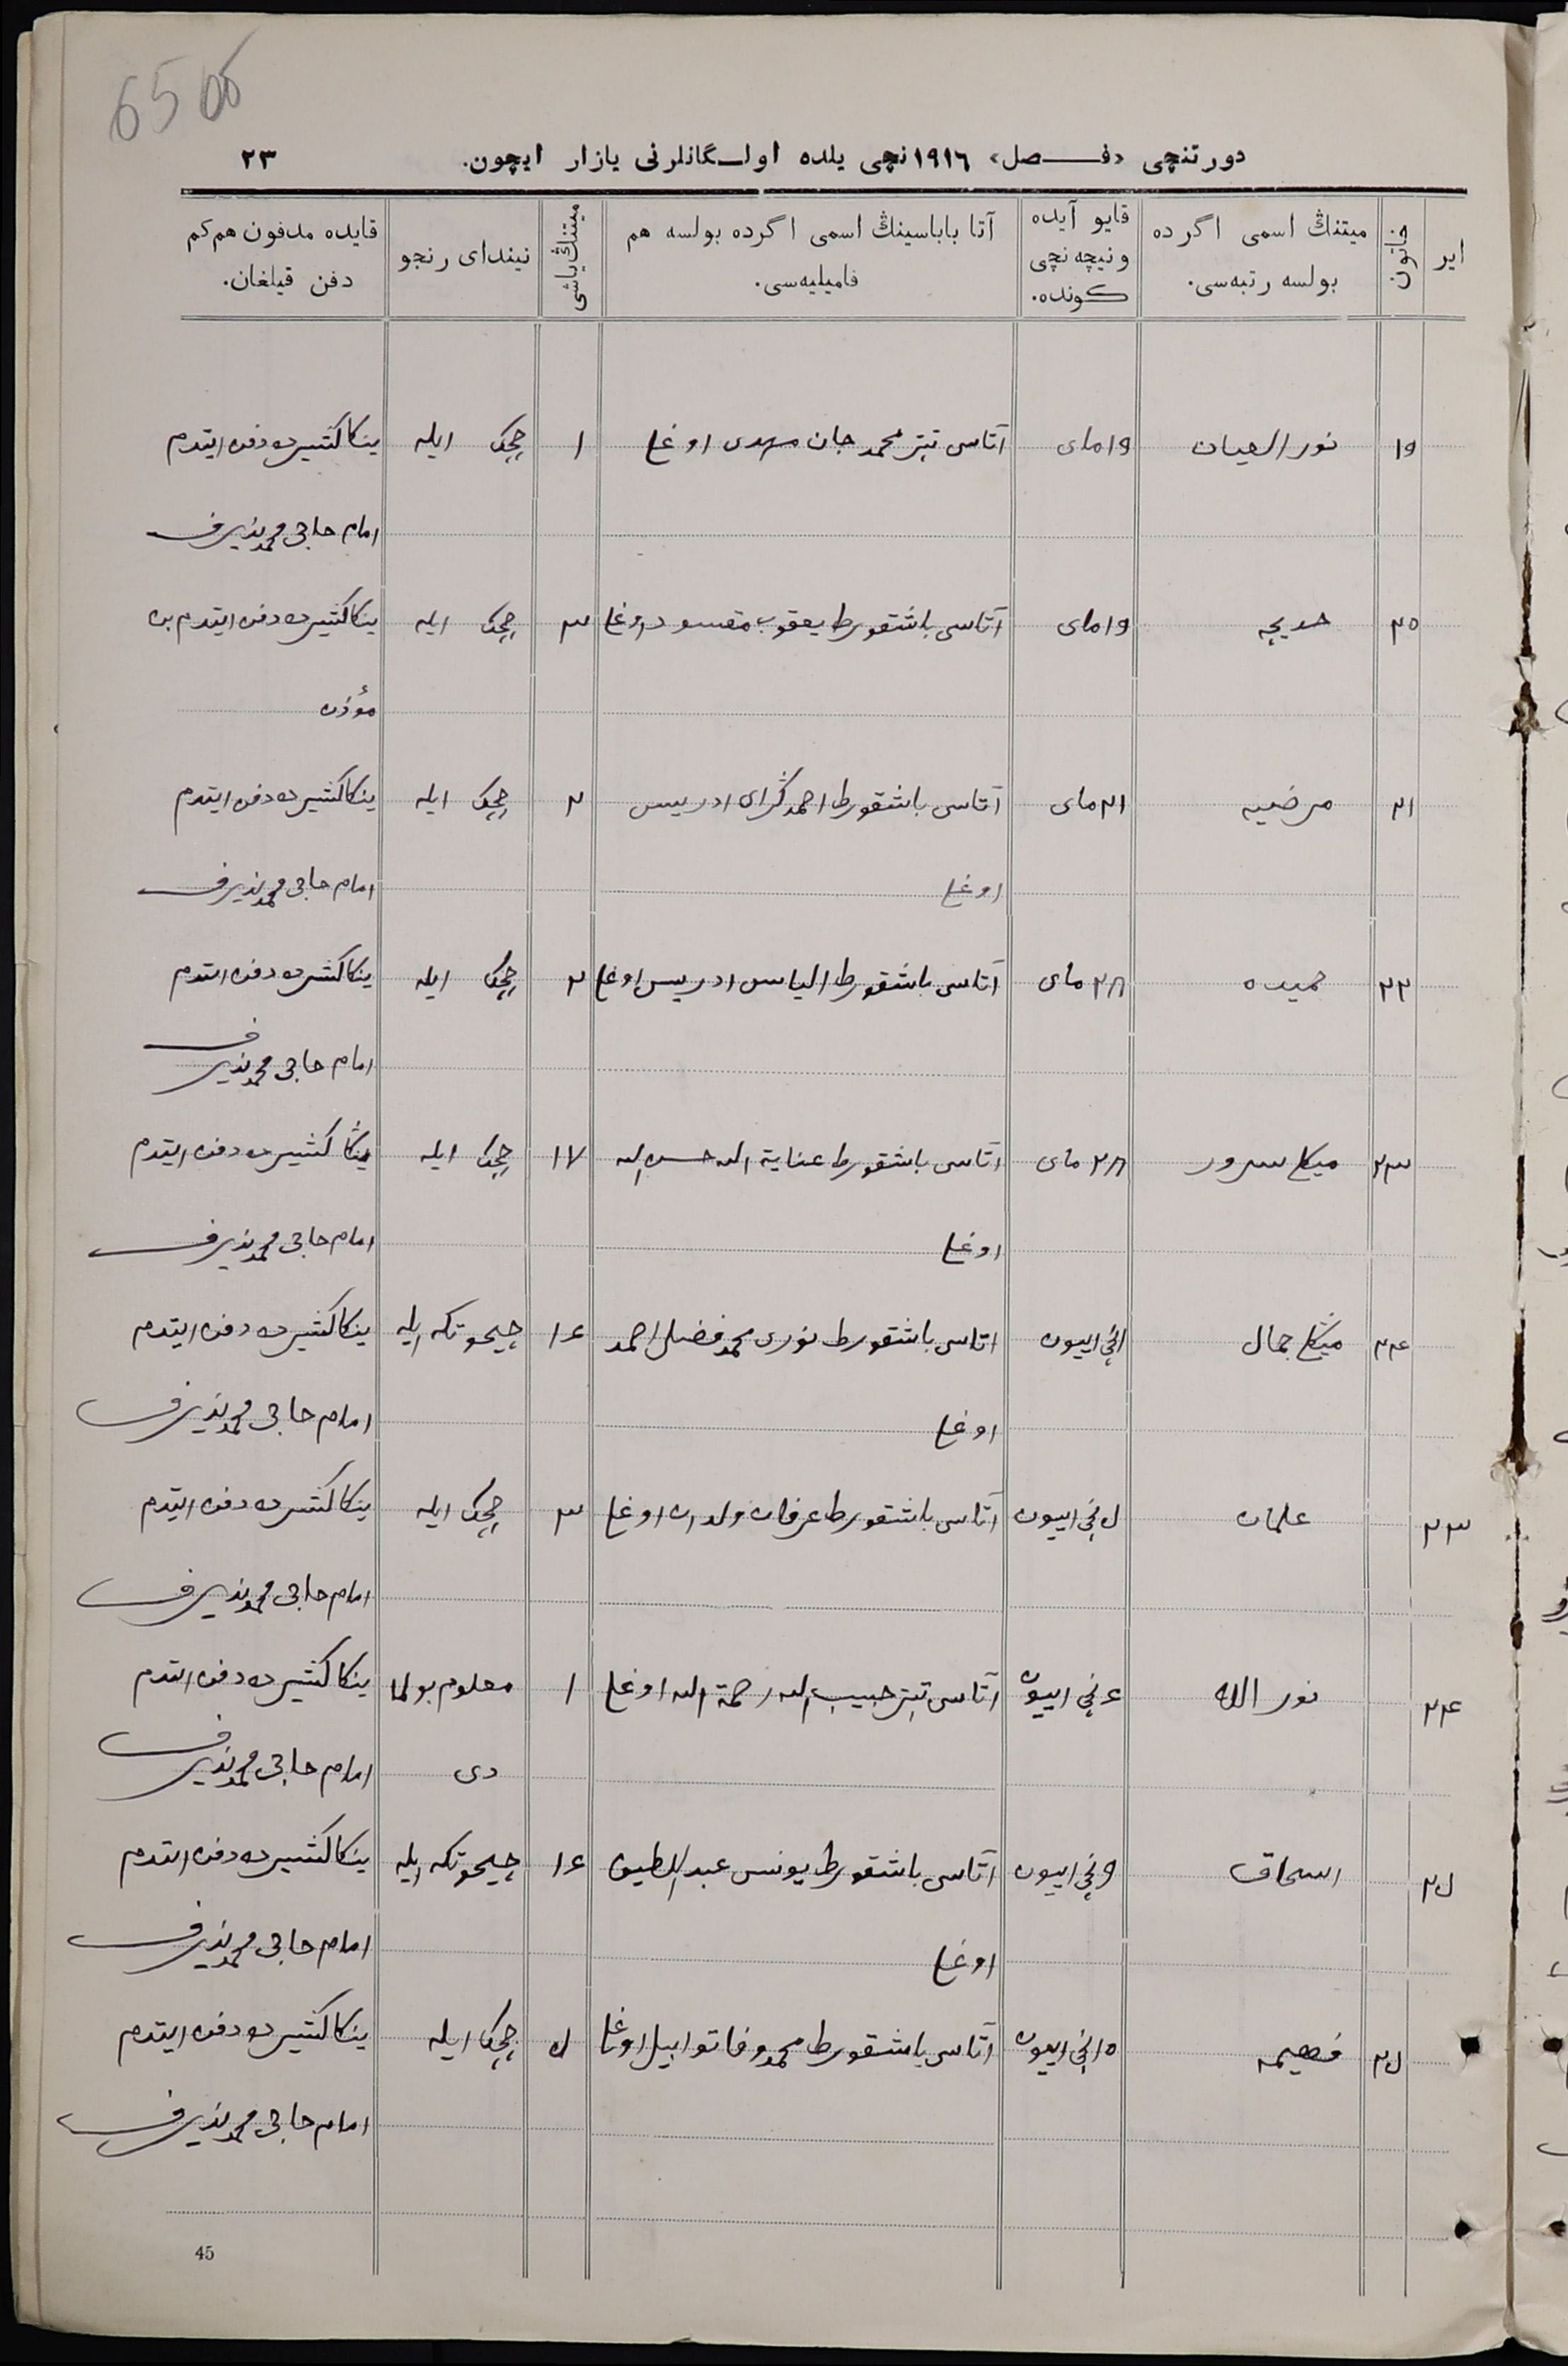 6505
دورتنچی «فـــصل» ١٩١٦نچی یلده اولـگانلرنی یازار ایچون. ٢٣
ایر | خاتون | میتنڭ اسمی اگرده بولسه رتبه‌سی. | قایو آیده ونیچه نچی كونده. | آتا باباسینڭ اسمی اگرده بولسه هم فامیلیه‌سی. | میتنڭ یاشی | نیندای رنجو | قایده مدفون هم كم دفن قیلغان.
١٩ نور الحیات ١٩ مای آتاسی تپتر محمد جان مهدی اوغلی ١ چچك ایله ینكا كثتیرده دفن ایتدم
امام حاجی محمد نذیرف
٢٥ خدیجه ١٩ مای آتاسی باشقورط یعقوب مقسود اوغلی ٣ چچك ایله ینكا كثتیرده دفن ایتدم بن
مؤذن
٢١ مرضیه ٢١ مای آتاسی باشقورط احمد گرای ادریس ٢ چچك ایله ینكا كثتیرده دفن ایتدم
اوغلی امام حاجی محمد نذیرف
٢٢ حمیده ٢٨ مای آتاسی باشقورط الیاس ادریس اوغلی ٢ چچك ایله ینكا كثتیرده دفن ایتدم
امام حاجی محمد نذیرف
٢٣ میڭلی سرور ٢٨ مای آتاسی باشقورط عنایة الله حسن الله ١٧ چچك ایله ینڭا كثتیرده دفن ایتدم
اوغلی امام حاجی محمد نذیرف
٢٤ میڭلی جمال ١نچی اییون اتاسی باشقورط نوری محمد فضل احمد ١٤ چیچوتكه ایله ینكا كثتیرده دفن ایتدم
اوغلی امام حاجی محمد نذیرف
٢٣ علمان نچی اییون آتاسی باشقورط عرفان ولدان اوغلی ٣ چچك ایله ینكا كثتیرده دفن ایتدم
امام حاجی محمد نذیرف
٢٤ نور الله ٤ نچی اییون آتاسی تپتر حبیب الله رحمة الله اوغلی ١ معلوم بولما ینكا كثتیرده دفن ایتدم
دی امام حاجی محمد نذیرف
٢٥ اسحاق ٩ نچی اییون آتاسی باشقورط یونس عبد اللطیف ١٤ چیچوتكه ایله ینكا كثتیرده دفن ایتدم
اوغلی امام حاجی محمد نذیرف
٢٥ فهیمه نچی اییون آتاسی باشقورط محمد وفا اوغلی ٥ چچك ایله ینكا كثتیرده دفن ایتدم
امام حاجی محمد نذیرف
45